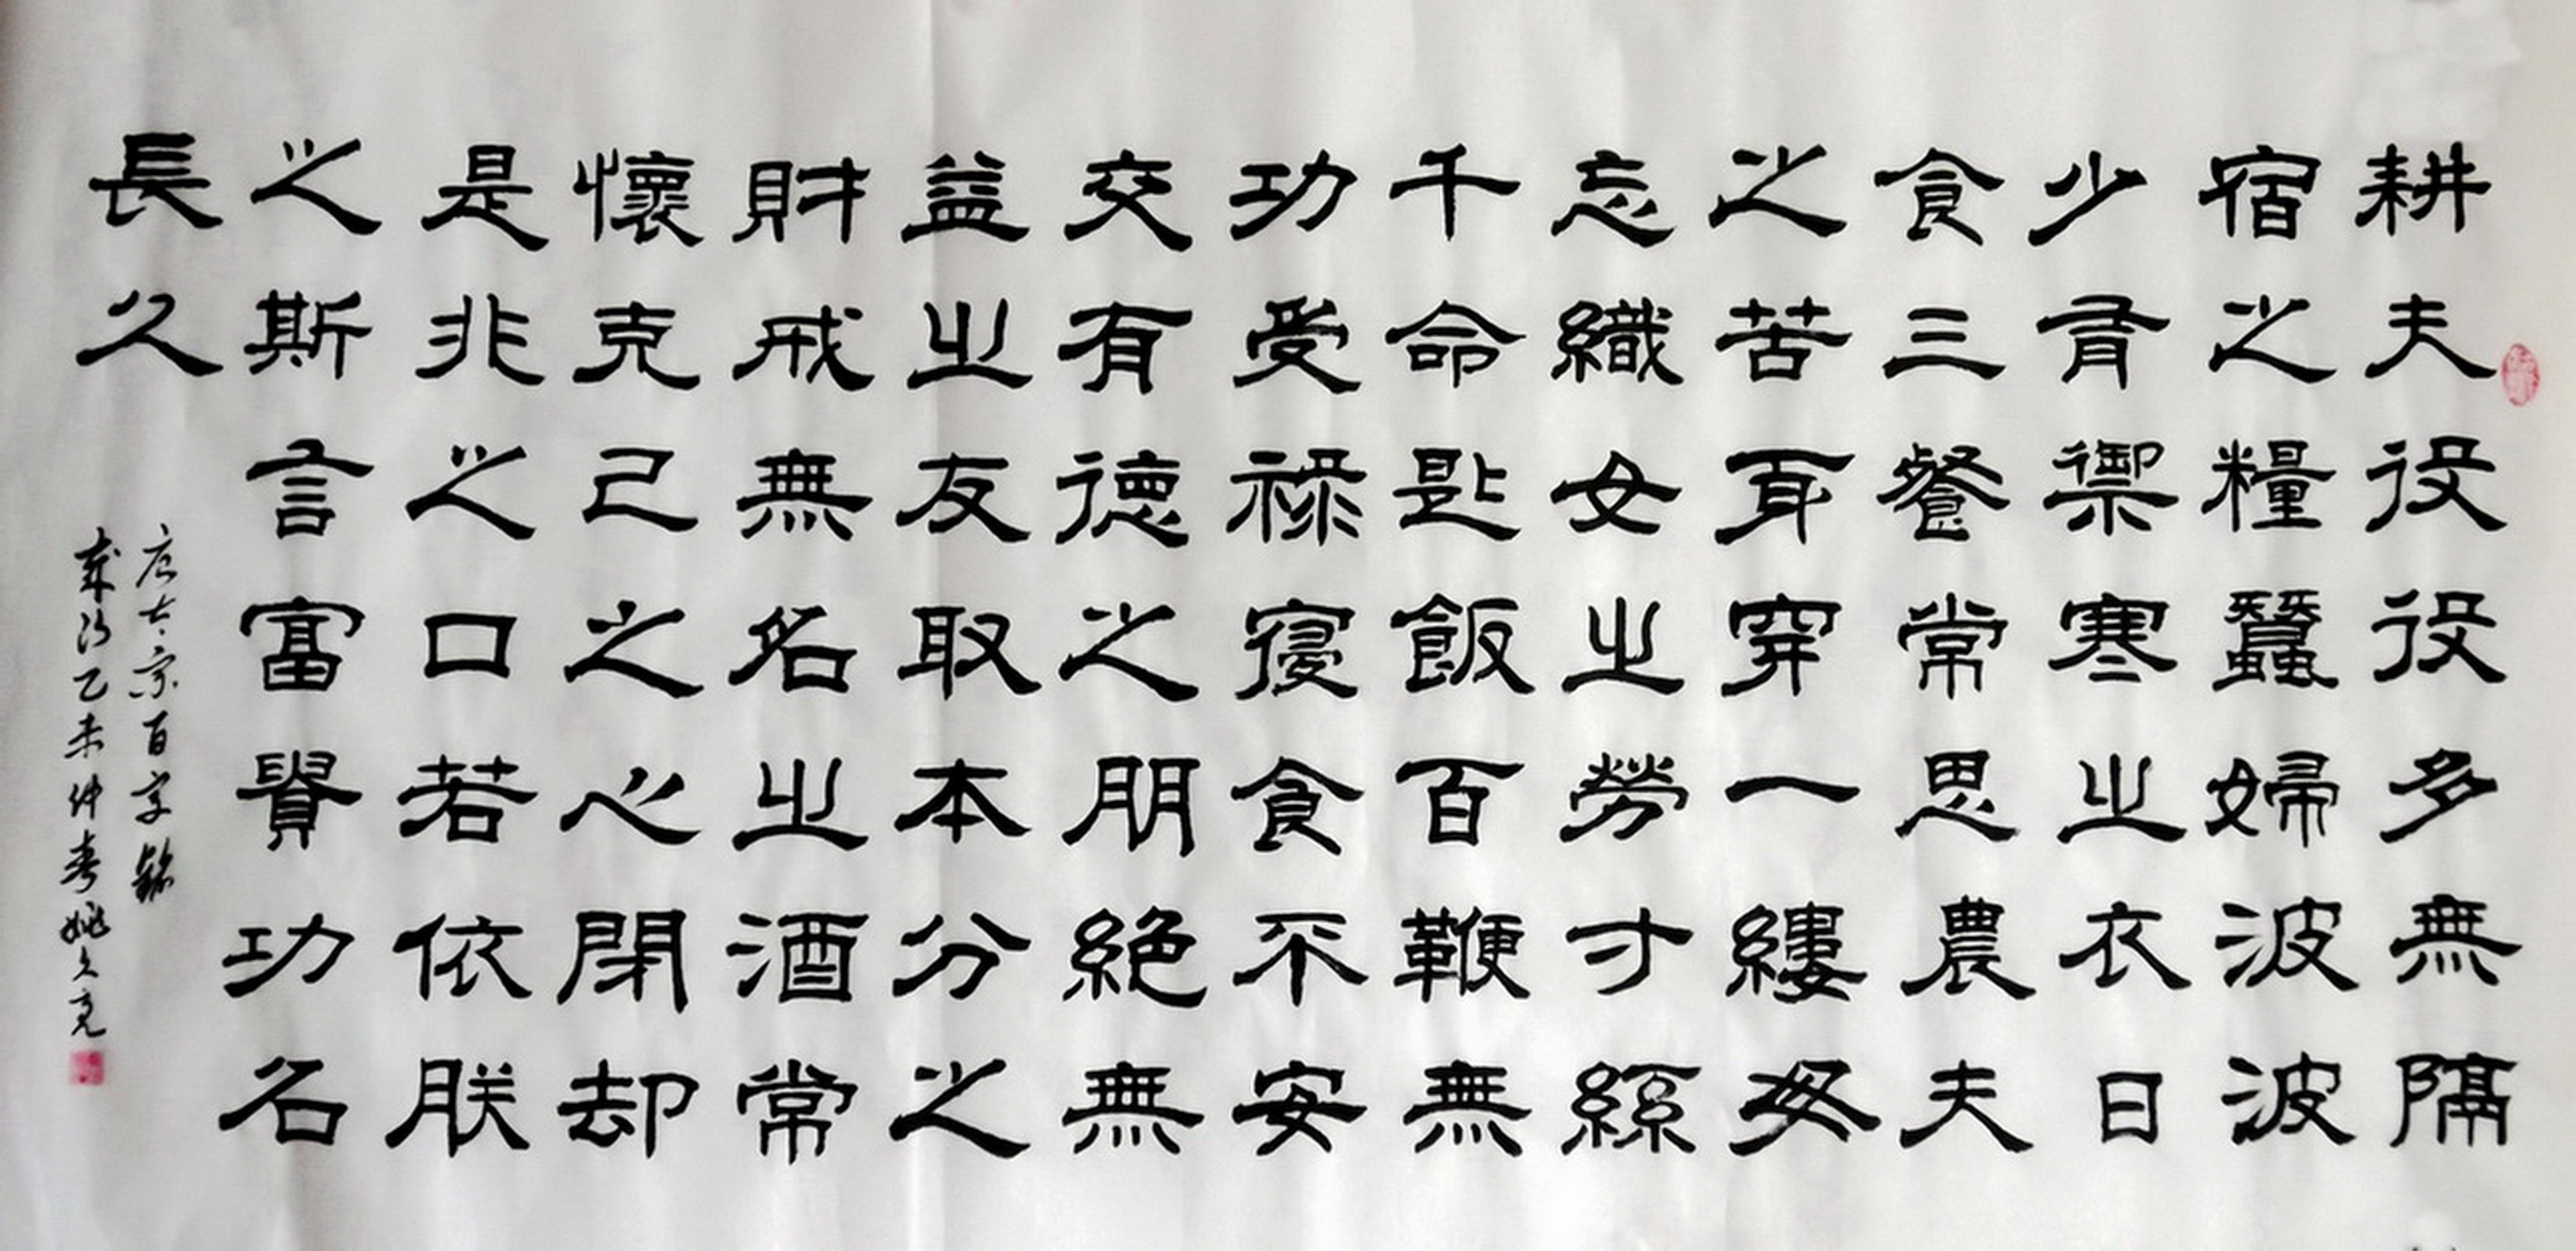 耕夫役役多無隔
宿之糧蠶婦波波
少有禦寒之衣日
食三餐常思農夫
之苦身穿一縷每
忘織女之勞寸絲
千命匙飯百鞭無
功受祿寢食不安
交有德之朋絕無
益之友取本分之
財戒無名之酒常
懷克己之心閉却
是非之口若依朕
之斯言富貴功名
長久
唐太宗百字銘
歲次乙未仲春姚久亮